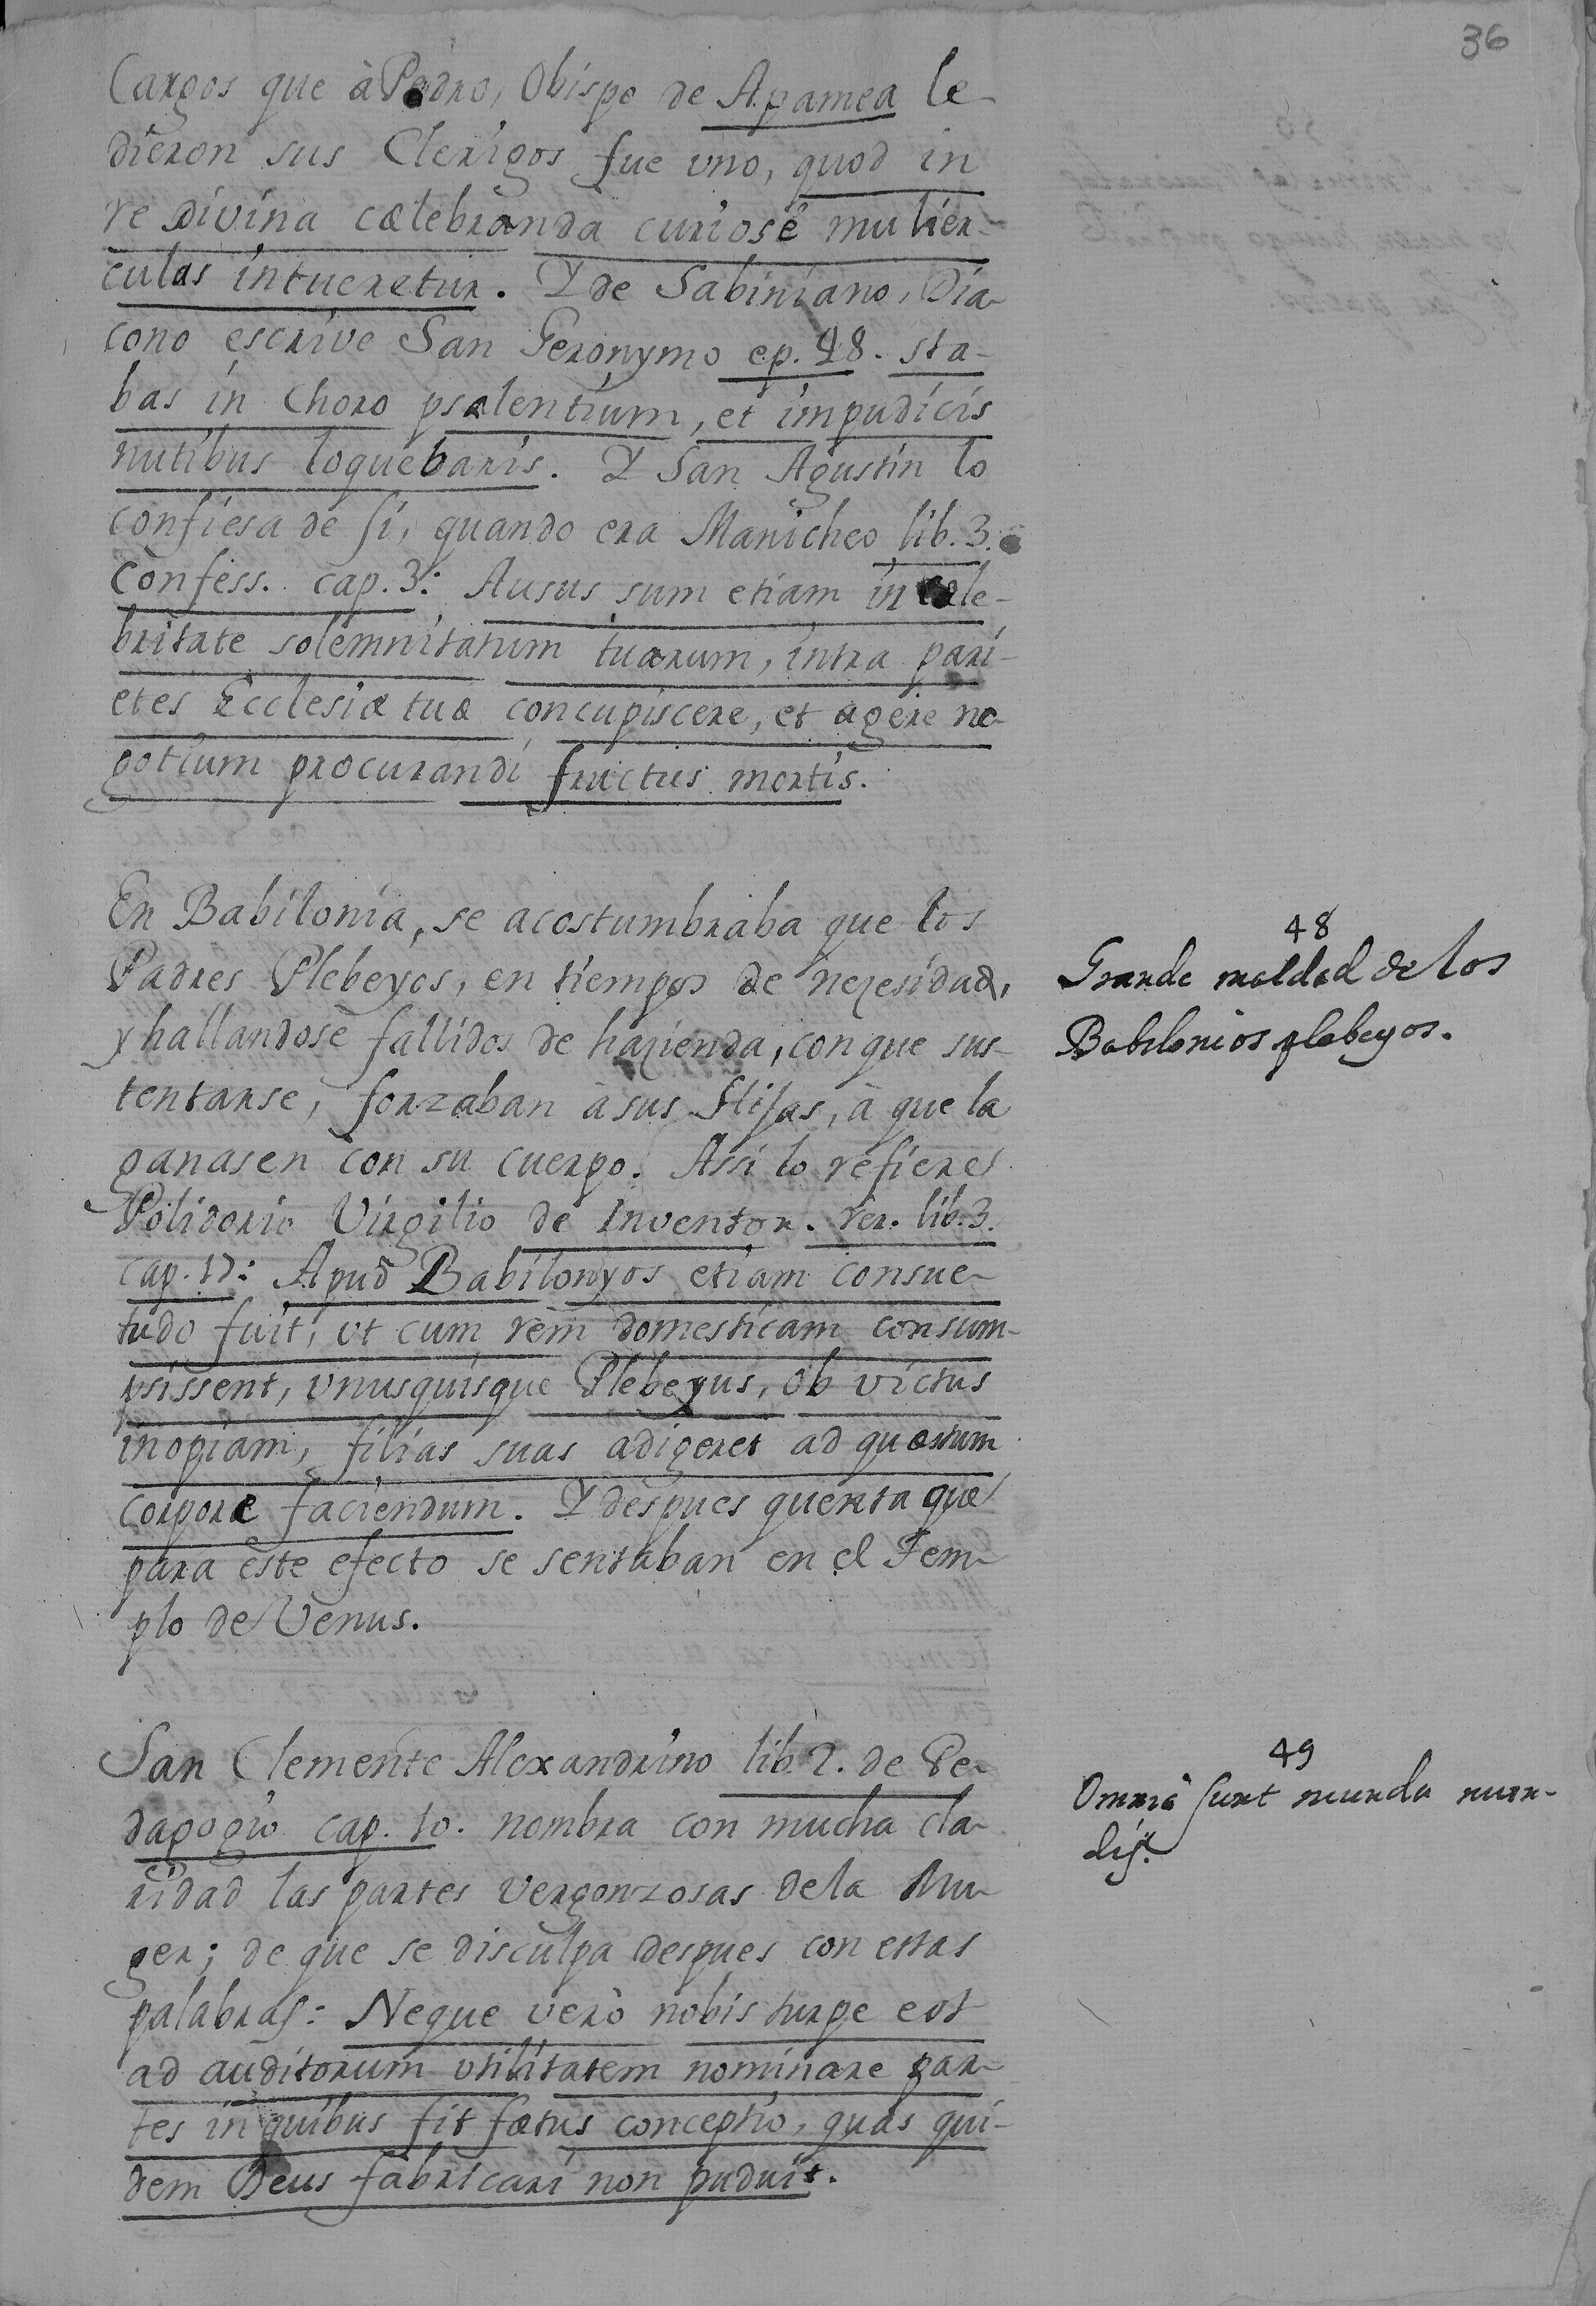 36
Cargos que à Pedro, Obispo de Apamea le
dieron sus Clerigos fue vno, quod in
re divina cælebranda curiosè mulier-
culas intueretur. Y de Sabiniano, Dia-
cono escrive San Geronymo ep. 48. sta-
bas in choro psalentium, et impudicis
nutibus loquebaris. Y San Agustin lo
confiesa de si, quando era Manicheo lib. 3.
Confess. cap. 3: Ausus sum etiam in cele-
britate solemnitatum tuarum, intra pari-
etes Ecclesiæ tuæ concupiscere, et agere ne-
gotium procurandi fructus mortis.
48
Grande maldad de los
Babilonios plebeyos.
En Babilonia, se acostumbraba que los
Padres Plebeyos, en tiempos de nezesidad,
y hallandose fallidos de hazienda, con que sus-
tentarse, forzaban à sus Hijas, à que la
ganasen con su cuerpo. Assi lo refiere
Polidorio Virgilio de Inventor. rer. lib. 3.
cap. 17: Apud Babilonyos etiam consue-
tudo fuit, vt cum rem domesticam consum-
psissent, vnusquisque Plebeyus, ob victus
inopiam, filias suas adigeret ad quæstum
corpore faciendum. Y despues quenta que
para este efecto se sentaban en el Tem-
plo de Venus.
49
Omnia sunt munda mun-
dis.
San Clemente Alexandrino lib. 2. de Pe-
dagogio cap. 10. nombra con mucha cla-
ridad las partes vergonzosas de la Mu-
ger; de que se disculpa despues con estas
palabras: Neque verò nobis turpe est
ad auditorum vtilitatem nominare par-
tes in quibus fit fætus conceptio, quas qui-
dem Deus fabricari non puduit.